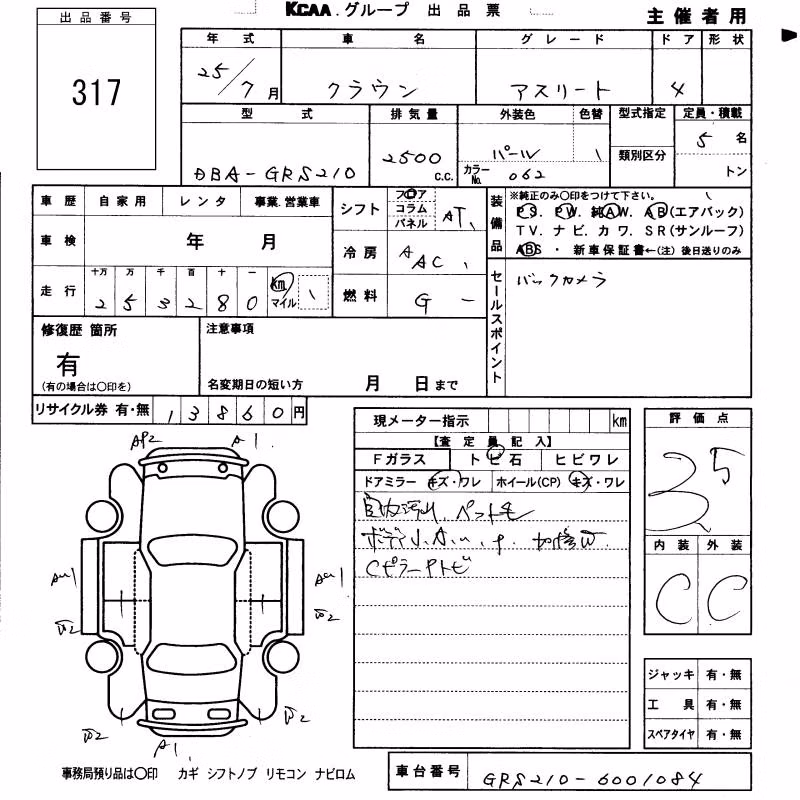 KCAA.グループ 出品票
主催者用
出品番号
317
年式 車名 グレード ドア 形状
25/7月 クラウン アスリート 4
型式 排気量 外装色 色替 型式指定 定員・積載
DBA-GRS210 2500 c.c. パール \ 5 名
カラーNo. 062 類別区分 トン
車歴 自家用 レンタ 事業.営業車
車検 年 月
走行 十万 万 千 百 十 一
2 5 3 2 8 0 km マイル \
シフト フロア コラム パネル AT \
冷房 A AC \
燃料 G -
装備品
※純正のみ○印をつけて下さい。
PS. PW. 純AW. AB(エアバック)
TV. ナビ. カワ. SR(サンルーフ)
ABS ・ 新車保証書←(注)後日送りのみ
セールスポイント
バックカメラ
修復歴 箇所
有
(有の場合は○印を)
注意事項
名変期日の短い方 月 日まで
リサイクル券 有・無 13860円
現メーター指示 km
【査定員記入】
Fガラス トビ石 ヒビワレ
ドアミラー キズ・ワレ ホイール(CP) キズ・ワレ
室内汚れ、ペット毛
ボディ小A.u.P. 加修W
CピラーPトビ
評価点
3.5
内装 外装
C C
AP2 A1
AU1
W2
W2
W2
W2
A1
ジャッキ 有・無
工具 有・無
スペアタイヤ 有・無
事務局預り品は○印 カギ シフトノブ リモコン ナビロム
車台番号 GRS210-6001084